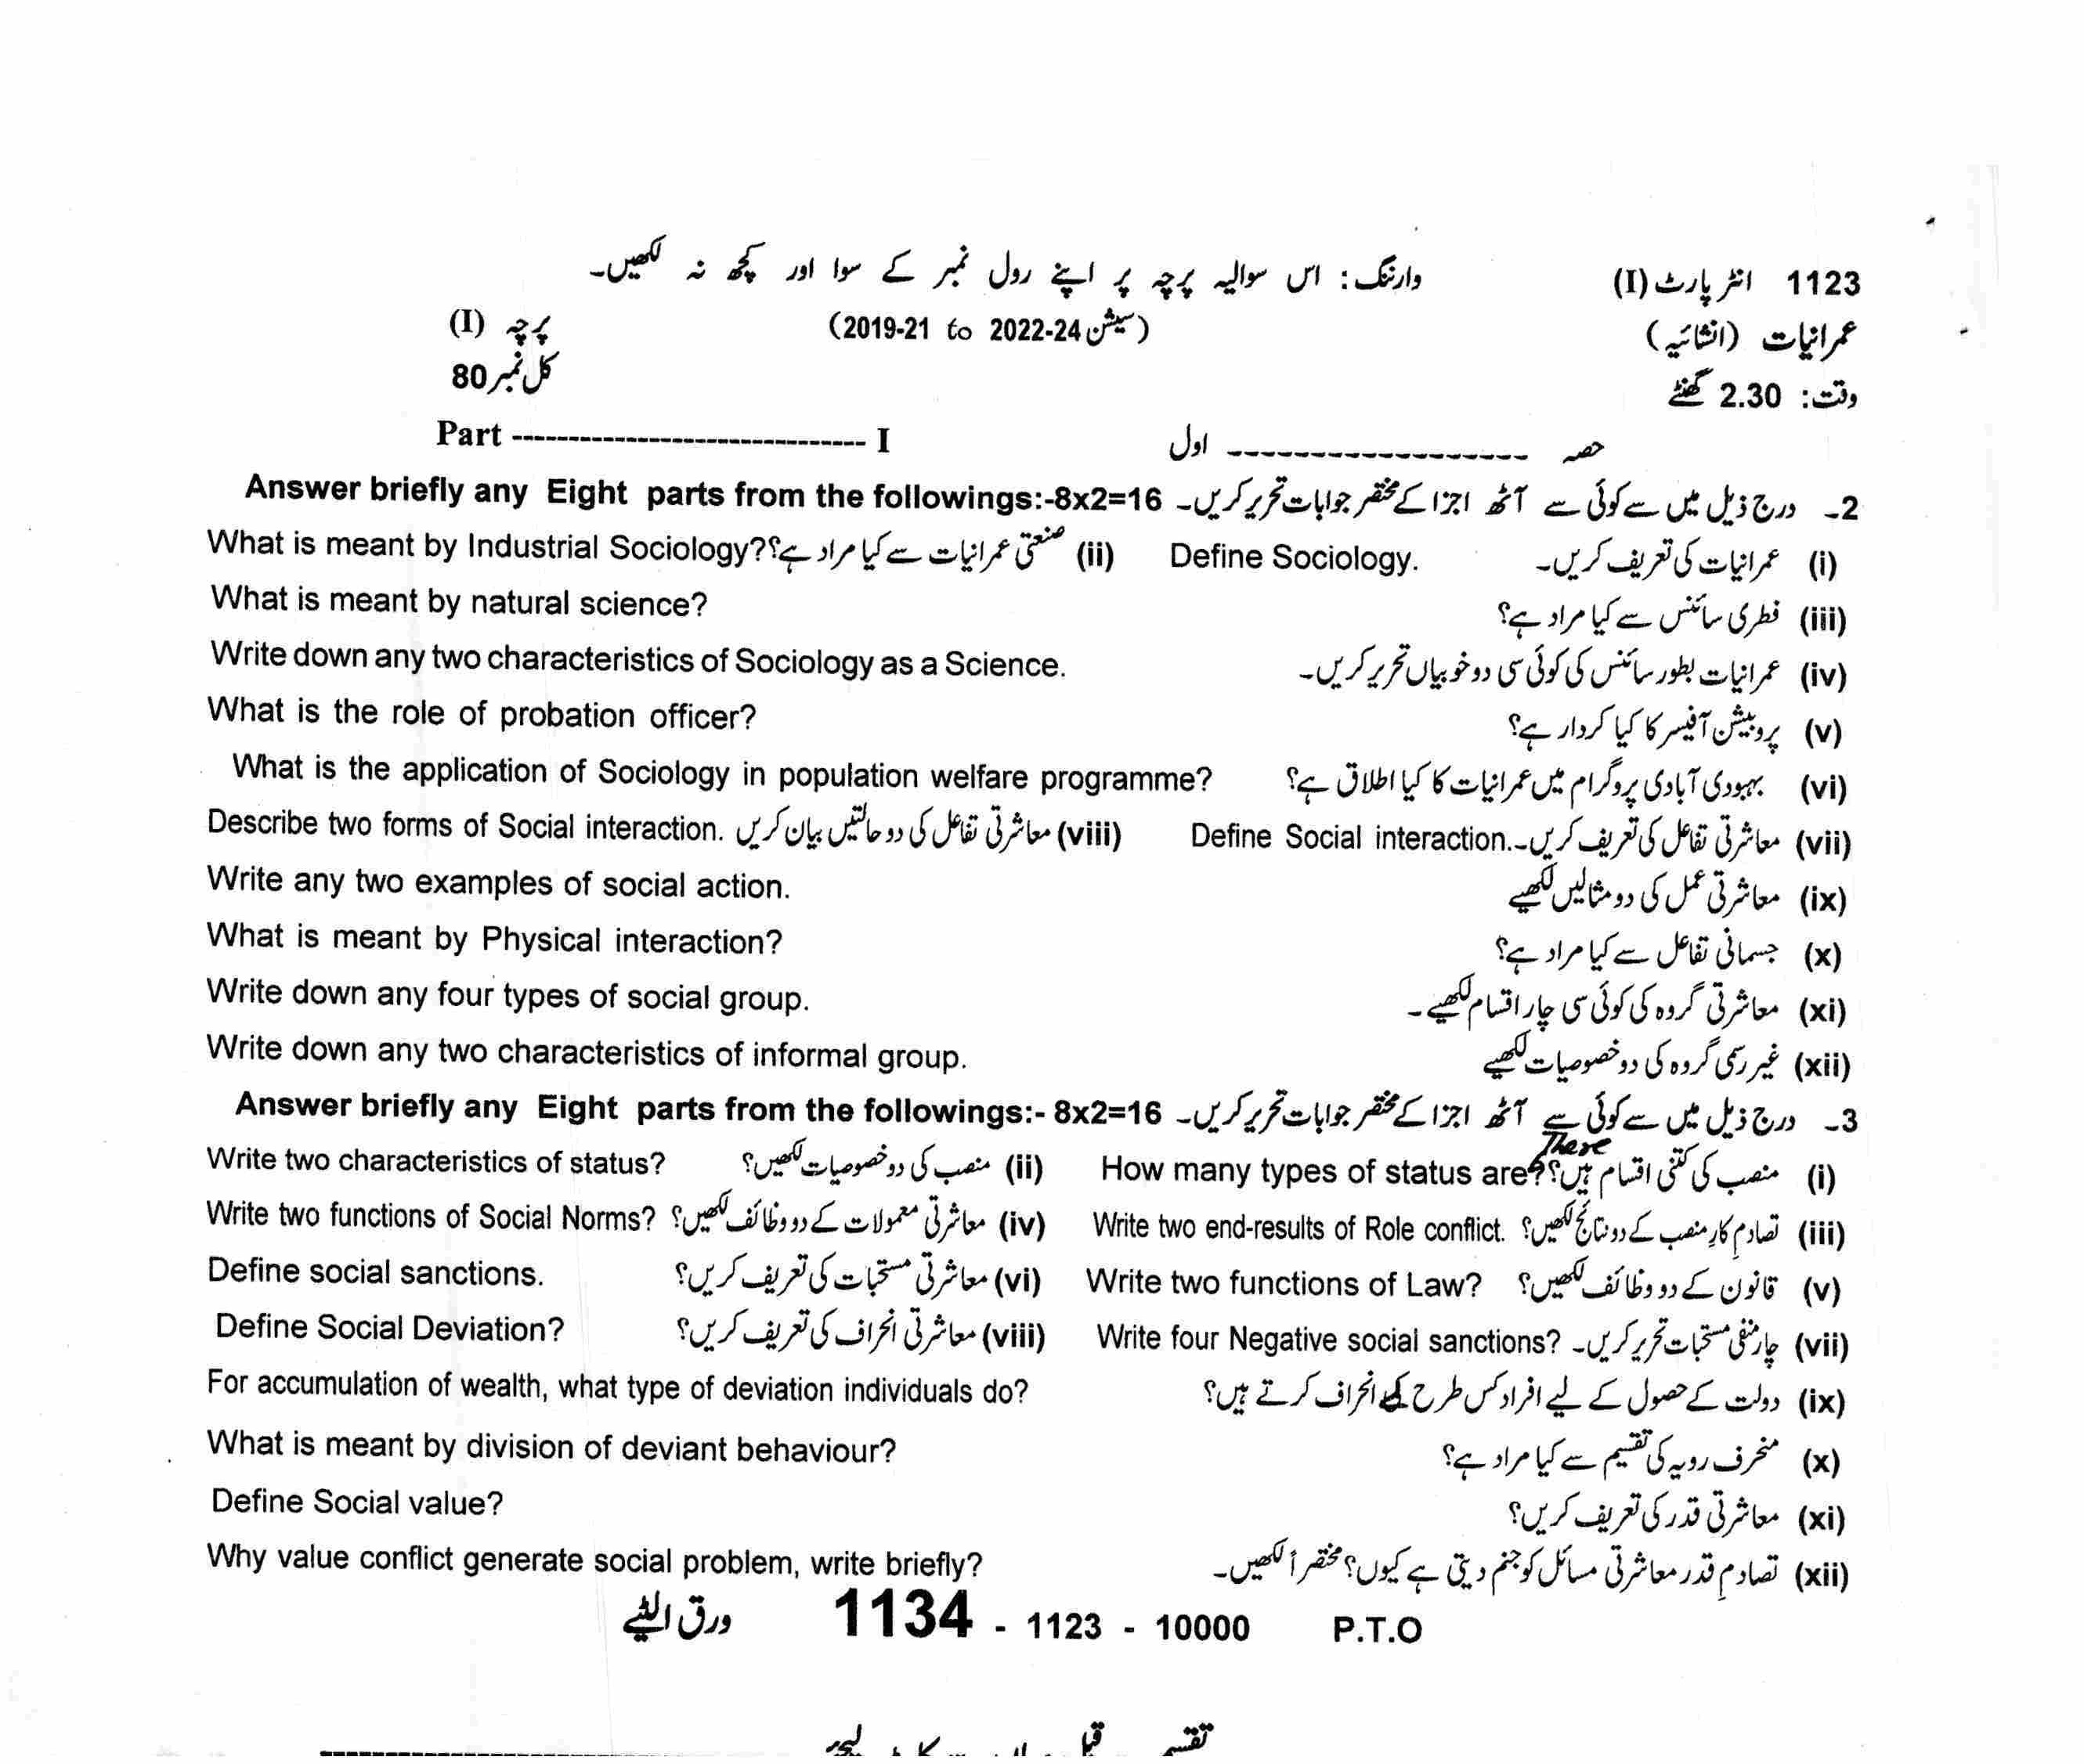 1123 انٹر پارٹ (I) وارننگ: اس سوالیہ پرچہ پر اپنے رول نمبر کے سوا اور کچھ نہ لکھیں۔
عمرانیات (انشائیہ) (سیشن 2022-24 to 2019-21) پرچہ (I)
وقت: 2.30 گھنٹے کل نمبر 80
حصہ ------------------- اول Part ------------------------------- I
2۔ درج ذیل میں سے کوئی سے آٹھ اجزا کے مختصر جوابات تحریر کریں۔ Answer briefly any Eight parts from the followings:-8x2=16
(i) عمرانیات کی تعریف کریں۔ Define Sociology. (ii) صنعتی عمرانیات سے کیا مراد ہے؟ What is meant by Industrial Sociology?
(iii) فطری سائنس سے کیا مراد ہے؟ What is meant by natural science?
(iv) عمرانیات بطور سائنس کی کوئی سی دو خوبیاں تحریر کریں۔ Write down any two characteristics of Sociology as a Science.
(v) پروبیشن آفیسر کا کیا کردار ہے؟ What is the role of probation officer?
(vi) بہبودی آبادی پروگرام میں عمرانیات کا کیا اطلاق ہے؟ What is the application of Sociology in population welfare programme?
(vii) معاشرتی تفاعل کی تعریف کریں۔ Define Social interaction. (viii) معاشرتی تفاعل کی دو حالتیں بیان کریں Describe two forms of Social interaction.
(ix) معاشرتی عمل کی دو مثالیں لکھیے Write any two examples of social action.
(x) جسمانی تفاعل سے کیا مراد ہے؟ What is meant by Physical interaction?
(xi) معاشرتی گروہ کی کوئی سی چار اقسام لکھیے۔ Write down any four types of social group.
(xii) غیر رسمی گروہ کی دو خصوصیات لکھیے Write down any two characteristics of informal group.
3۔ درج ذیل میں سے کوئی سے آٹھ اجزا کے مختصر جوابات تحریر کریں۔ Answer briefly any Eight parts from the followings:- 8x2=16
(i) منصب کی کتنی اقسام ہیں؟ How many types of status are There? (ii) منصب کی دو خصوصیات لکھیں؟ Write two characteristics of status?
(iii) تصادمِ کارِ منصب کے دو نتائج لکھیں؟ Write two end-results of Role conflict. (iv) معاشرتی معمولات کے دو وظائف لکھیں؟ Write two functions of Social Norms?
(v) قانون کے دو وظائف لکھیں؟ Write two functions of Law? (vi) معاشرتی مستحبات کی تعریف کریں؟ Define social sanctions.
(vii) چار منفی مستحبات تحریر کریں۔ Write four Negative social sanctions? (viii) معاشرتی انحراف کی تعریف کریں؟ Define Social Deviation?
(ix) دولت کے حصول کے لیے افراد کس طرح کے انحراف کرتے ہیں؟ For accumulation of wealth, what type of deviation individuals do?
(x) منحرف رویہ کی تقسیم سے کیا مراد ہے؟ What is meant by division of deviant behaviour?
(xi) معاشرتی قدر کی تعریف کریں؟ Define Social value?
(xii) تصادمِ قدر معاشرتی مسائل کو جنم دیتی ہے کیوں؟ مختصراً لکھیں۔ Why value conflict generate social problem, write briefly?
ورق الٹیے 1134 - 1123 - 10000 P.T.O